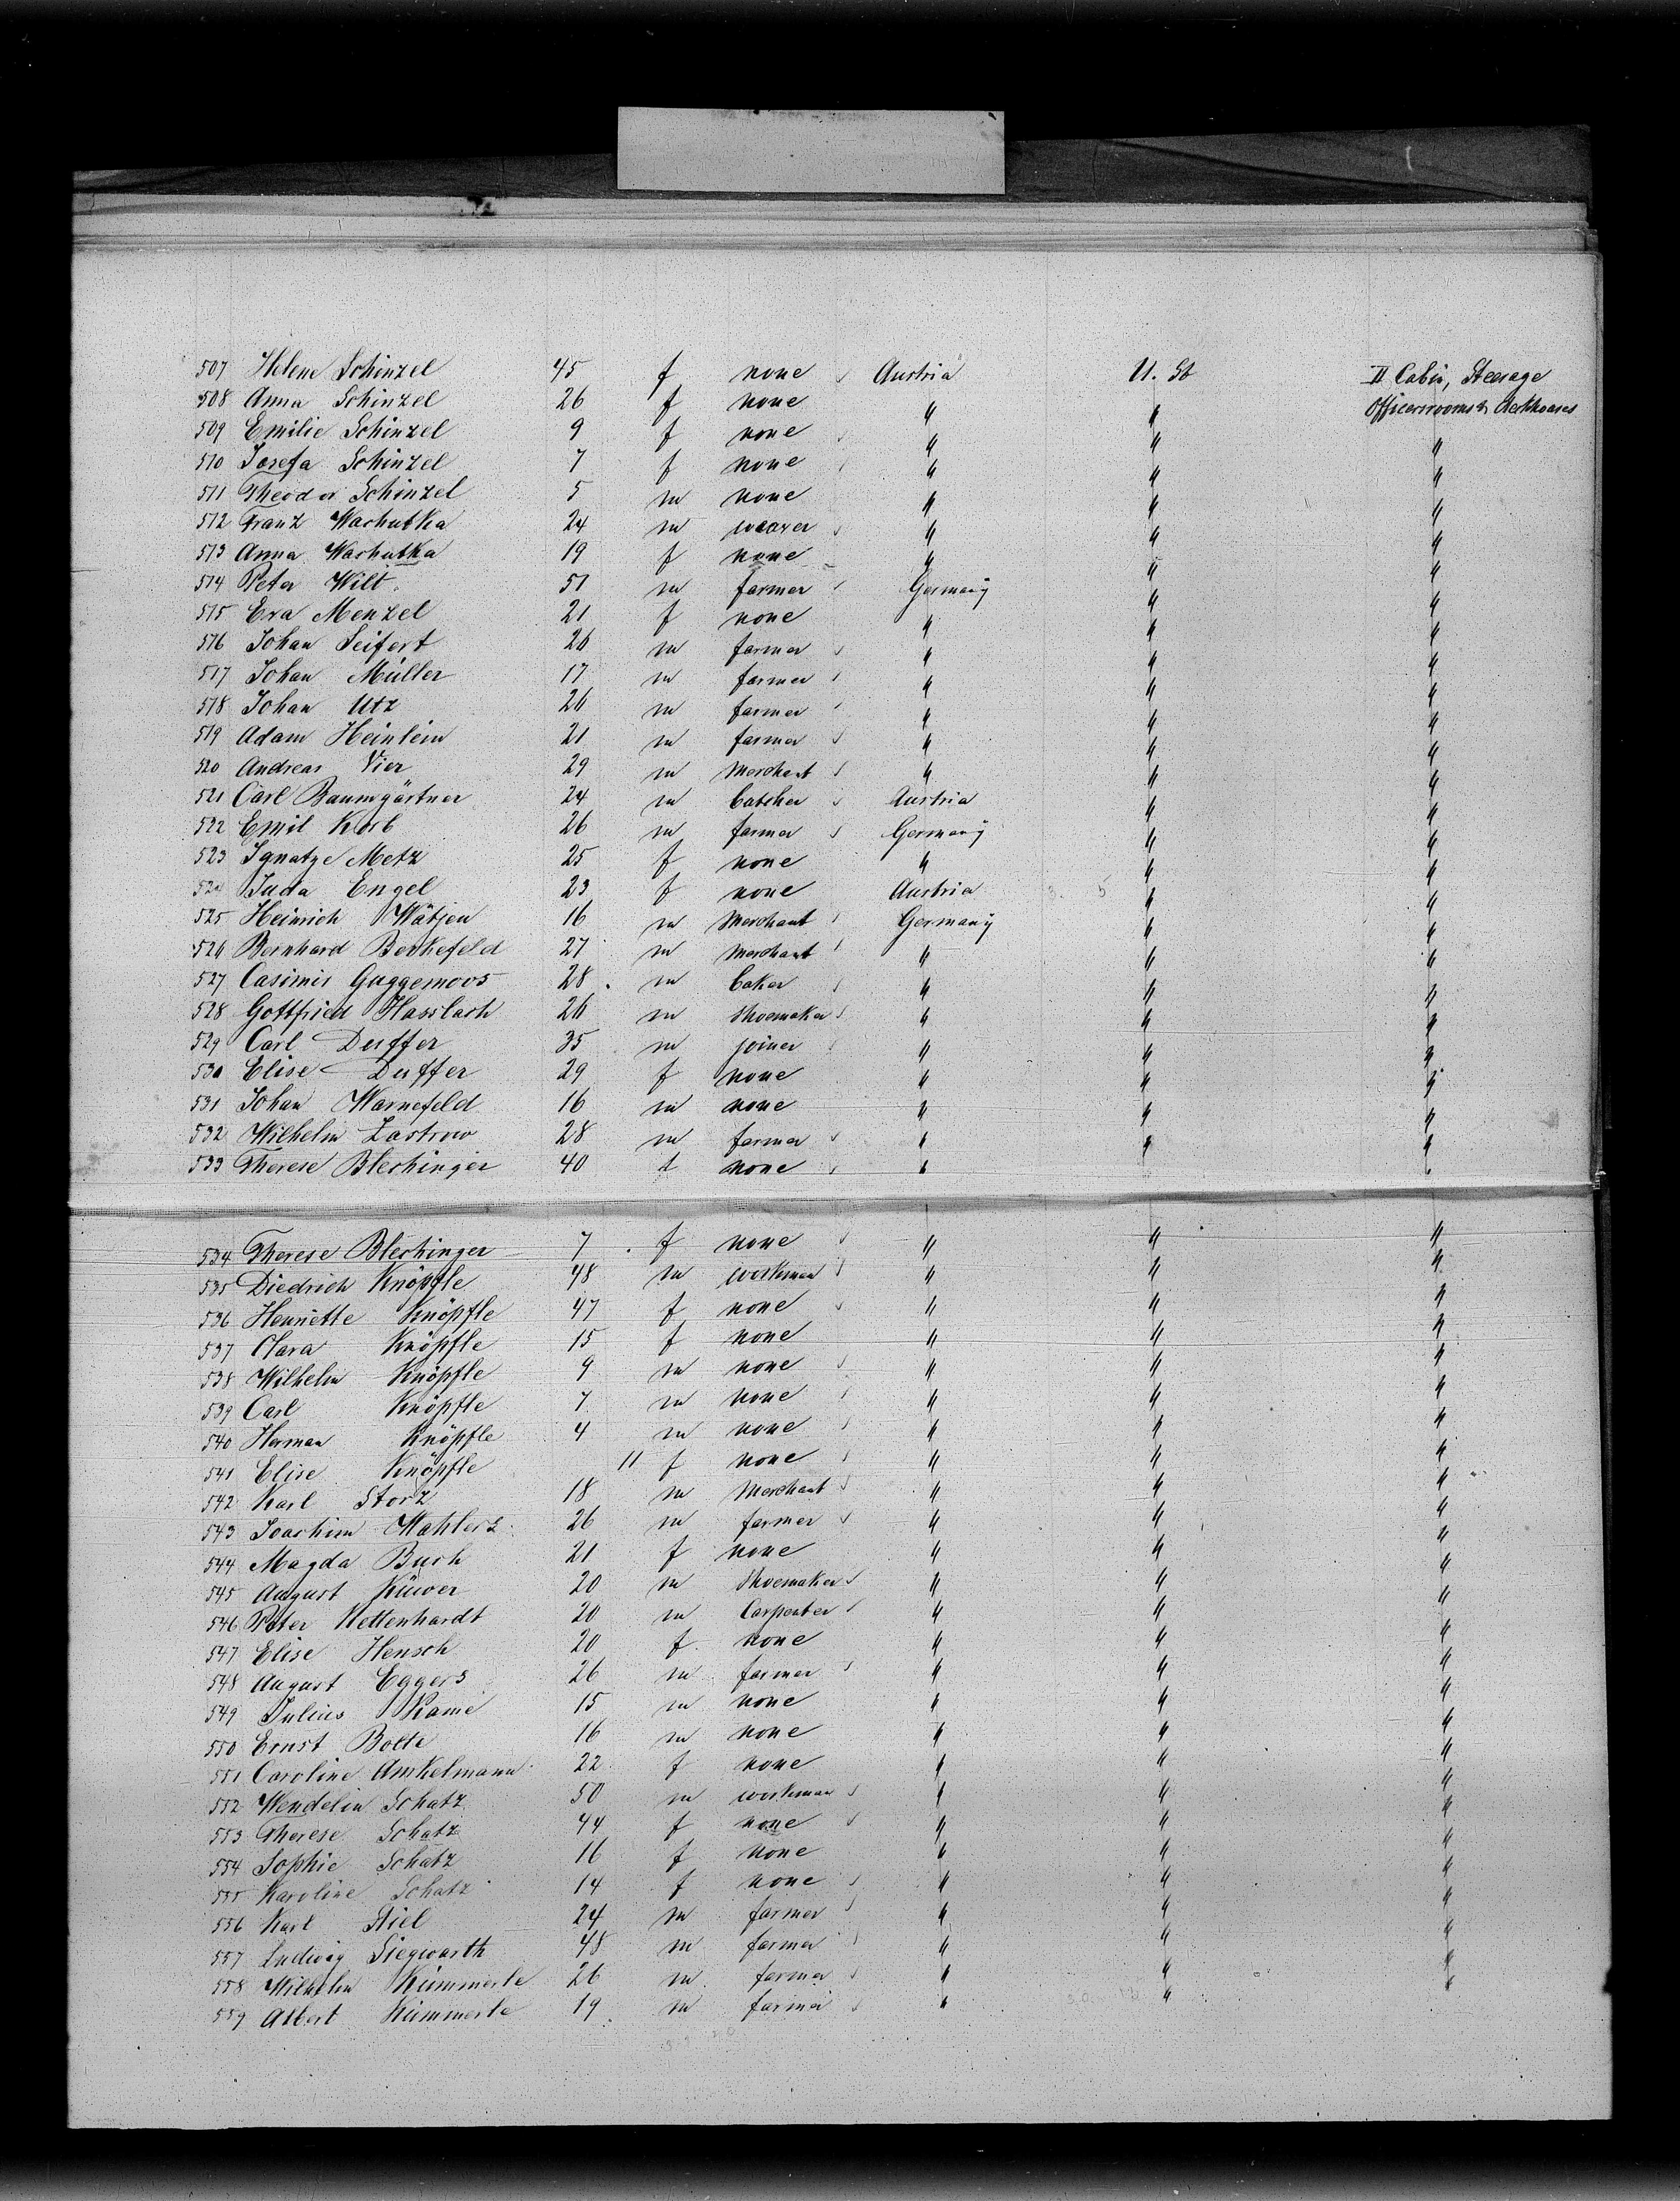 507 Helene Schinzel 45 f none Austria U. St II Cabin, Steerage
508 Anna Schinzel 26 f none " " Officersrooms & deckhouses
509 Emilie Schinzel 9 f none " " "
510 Josefa Schinzel 7 f none " " "
511 Theodor Schinzel 5 m none " " "
512 Franz Wachutka 24 m weaver " " "
513 Anna Wachutka 19 f none " " "
514 Peter Wilt 51 m farmer Germany " "
515 Eva Menzel 21 f none " " "
516 Johan Seifert 26 m farmer " " "
517 Johan Müller 17 m farmer " " "
518 Johan Utz 26 m farmer " " "
519 Adam Heinlein 21 m farmer " " "
520 Andreas Vier 29 m Merchant " " "
521 Carl Baumgärtner 24 m butcher Austria " "
522 Emil Korb 26 m farmer Germany " "
523 Ignatze Metz 25 f none " " "
524 Juda Engel 23 f none Austria " "
525 Heinrich Wätjen 16 m Merchant Germany " "
526 Bernhard Berkefeld 27 m Merchant " " "
527 Casimir Guggemoos 28 m baker " " "
528 Gottfried Hasslach 26 m shoemaker " " "
529 Carl Duffer 35 m joiner " " "
530 Elise Duffer 29 f none " " "
531 Johan Warnefeld 16 m none " " "
532 Wilhelm Zastrow 28 m farmer " " "
533 Therese Blechinger 40 f none " " "
534 Therese Blechinger 7 f none " " "
535 Diedrich Knöpfle 48 m workman " " "
536 Henriette Knöpfle 47 f none " " "
537 Clara Knöpfle 15 f none " " "
538 Wilhelm Knöpfle 9 m none " " "
539 Carl Knöpfle 7 m none " " "
540 Herman Knöpfle 4 m none " " "
541 Elise Knöpfle 11 f none " " "
542 Karl Storz 18 m Merchant " " "
543 Joachim Wahlers 26 m farmer " " "
544 Magda Buch 21 f none " " "
545 August Küwer 20 m shoemaker " " "
546 Peter Kettenhardt 20 m Carpenter " " "
547 Elise Hensch 20 f none " " "
548 August Eggers 26 m farmer " " "
549 Julius Kame 15 m none " " "
550 Ernst Bolte 16 m none " " "
551 Caroline Amkelmann 22 f none " " "
552 Wendelin Schatz 50 m workman " " "
553 Therese Schatz 44 f none " " "
554 Sophie Schatz 16 f none " " "
555 Karoline Schatz 14 f none " " "
556 Karl Stiel 24 m farmer " " "
557 Ludwig Siegwarth 48 m farmer " " "
558 Wilhelm Kümmerle 26 m farmer " " "
559 Albert Kümmerle 19 m farmer " "